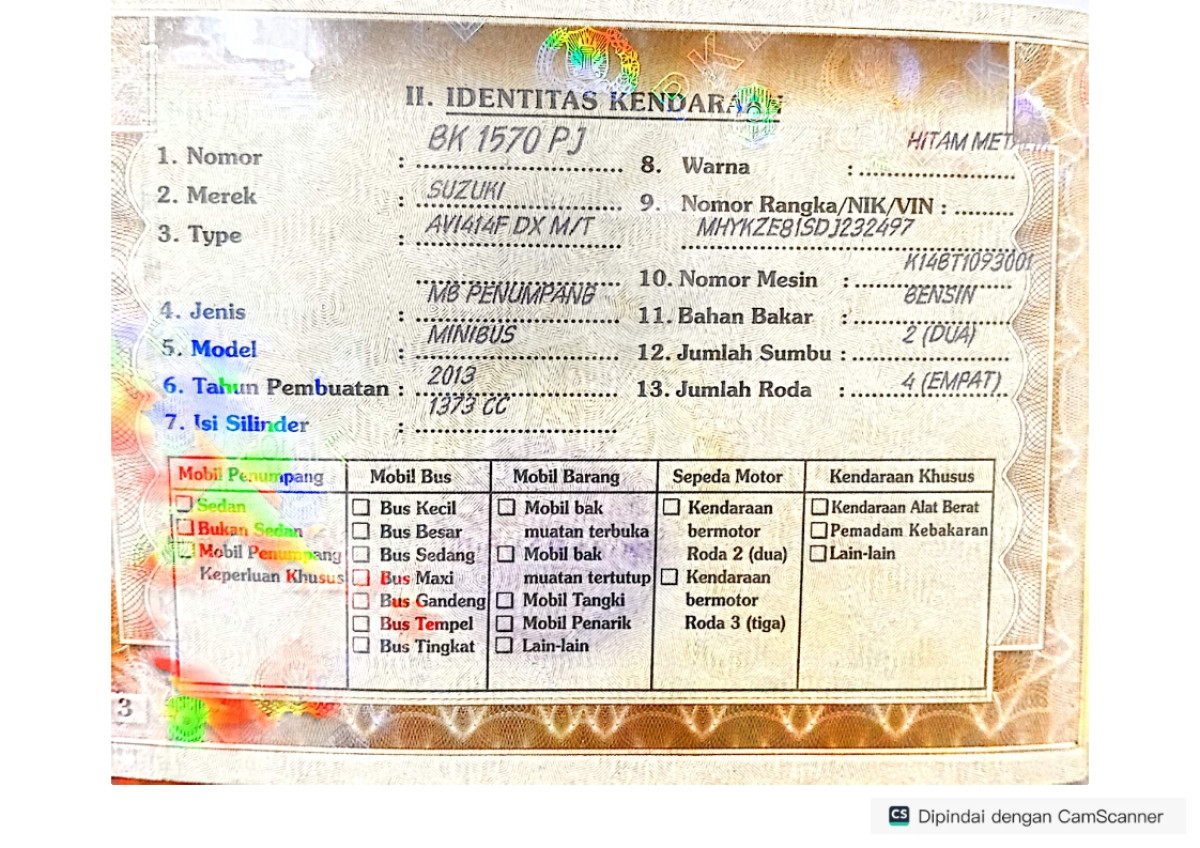 II. IDENTITAS KENDARAAN
1. Nomor : BK 1570 PJ
2. Merek : SUZUKI
3. Type : AV1414F DX M/T
4. Jenis : MB PENUMPANG
5. Model : MINIBUS
6. Tahun Pembuatan : 2013
7. Isi Silinder : 1373 CC
8. Warna : HITAM METALIK
9. Nomor Rangka/NIK/VIN :
MHYKZE81SDJ232497
10. Nomor Mesin : K14BT1093001
11. Bahan Bakar : BENSIN
12. Jumlah Sumbu : 2 (DUA)
13. Jumlah Roda : 4 (EMPAT)
Mobil Penumpang
Sedan
Bukan Sedan
Mobil Penumpang
Keperluan Khusus
Mobil Bus
Bus Kecil
Bus Besar
Bus Sedang
Bus Maxi
Bus Gandeng
Bus Tempel
Bus Tingkat
Mobil Barang
Mobil bak
muatan terbuka
Mobil bak
muatan tertutup
Mobil Tangki
Mobil Penarik
Lain-lain
Sepeda Motor
Kendaraan
bermotor
Roda 2 (dua)
Kendaraan
bermotor
Roda 3 (tiga)
Kendaraan Khusus
Kendaraan Alat Berat
Pemadam Kebakaran
Lain-lain
3
CS Dipindai dengan CamScanner